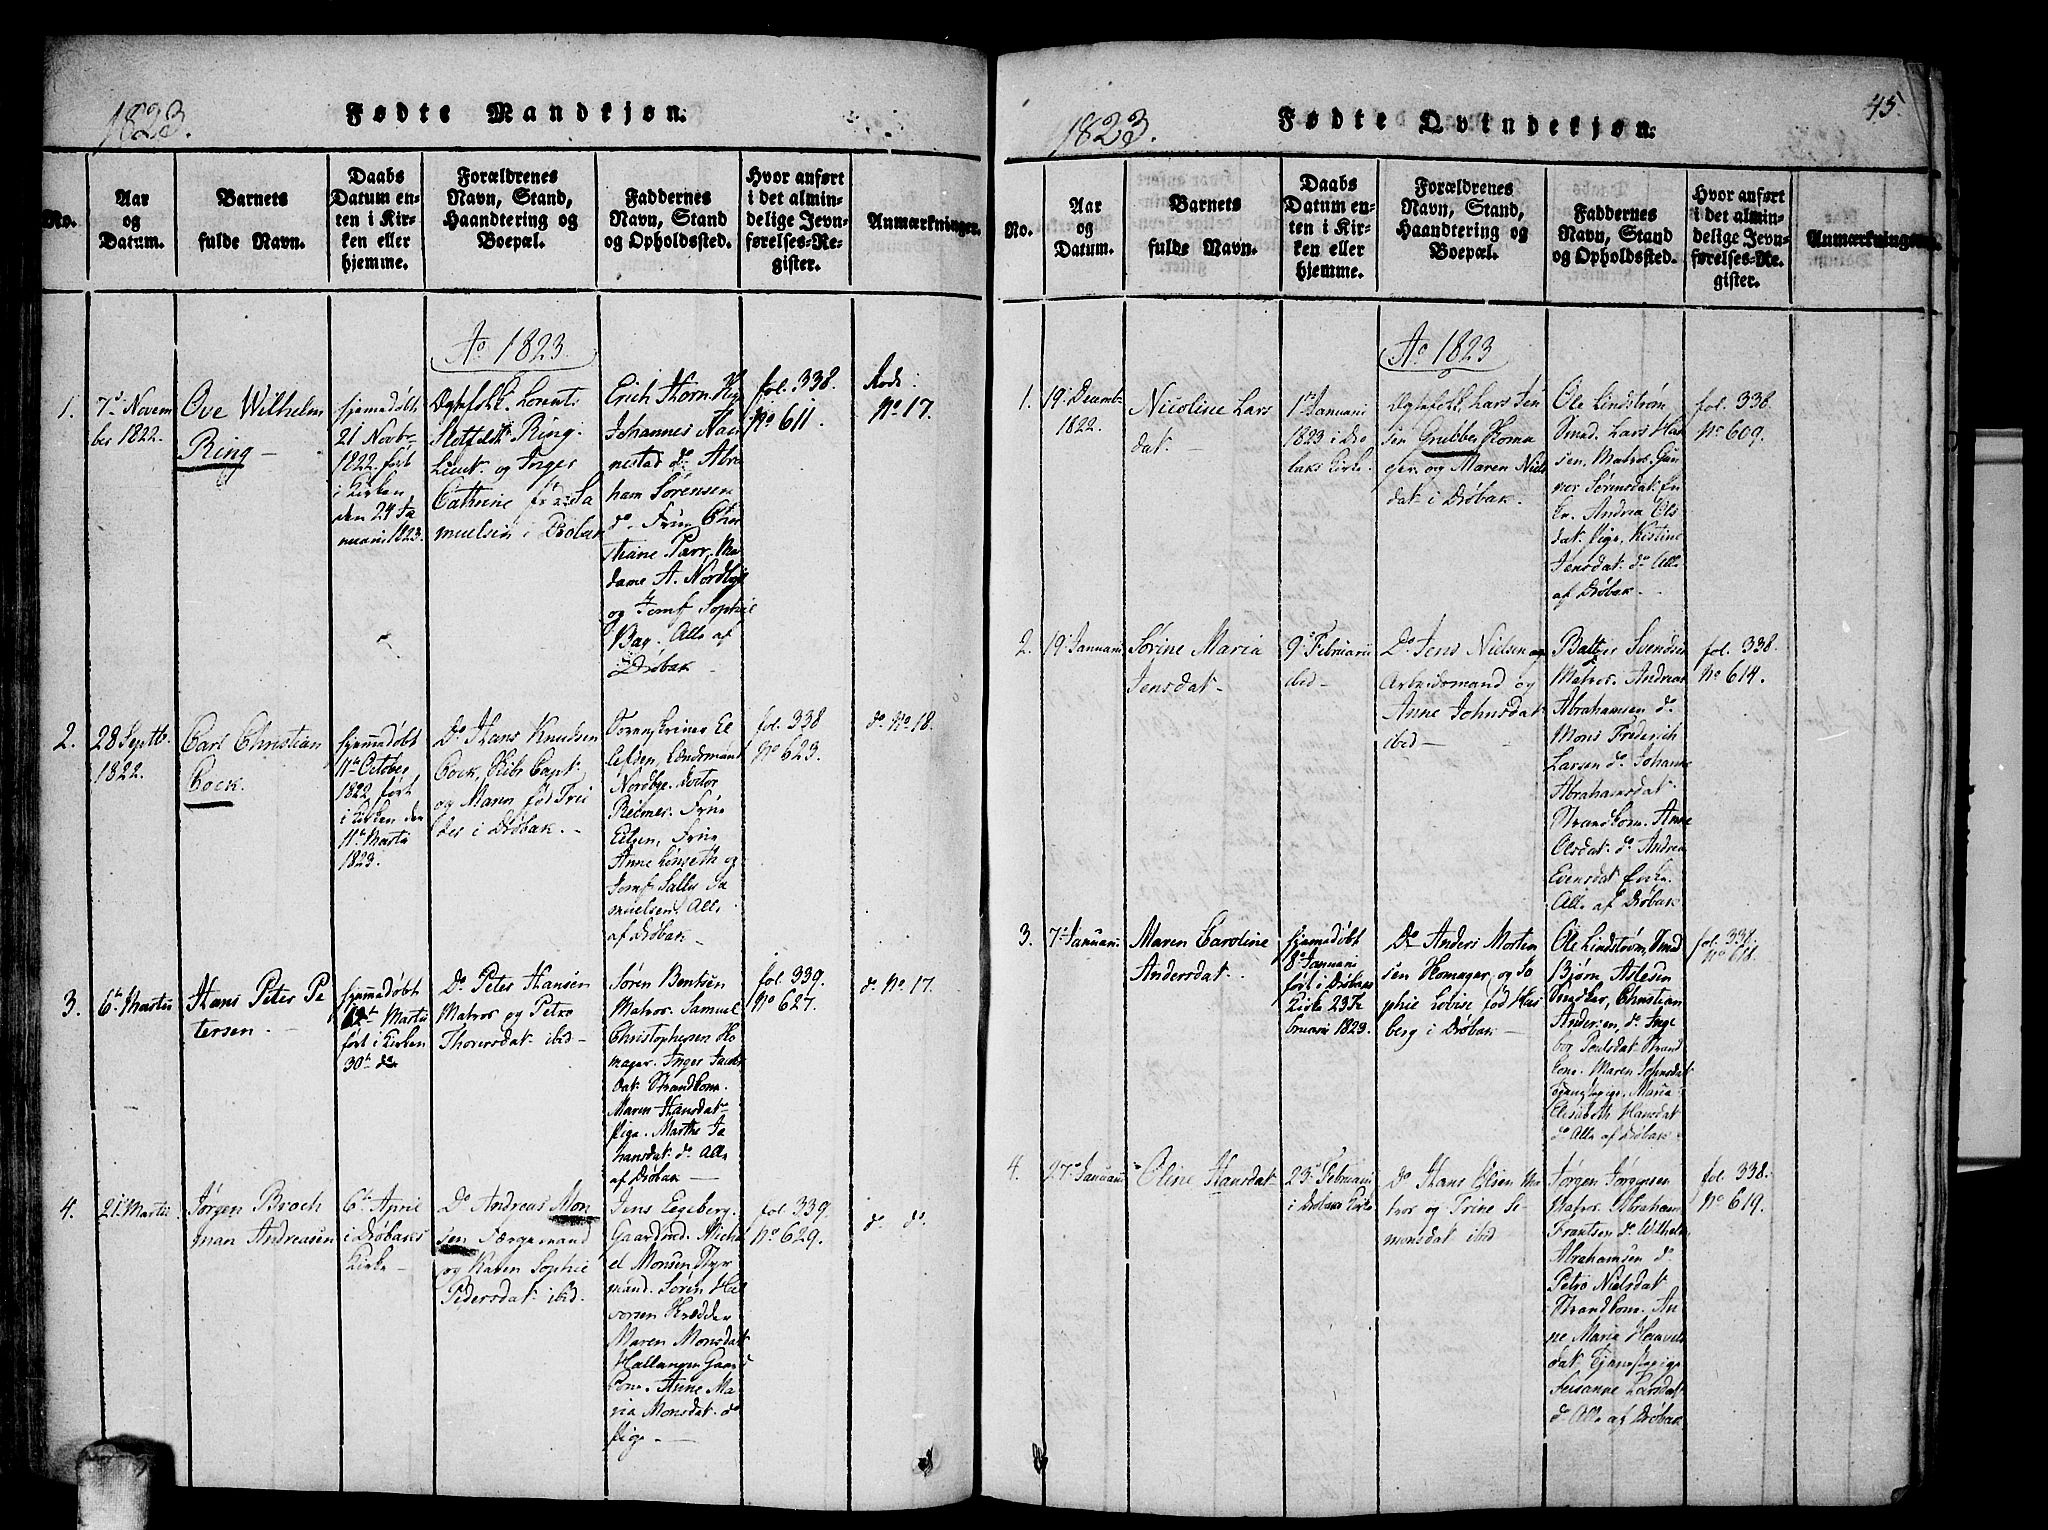 1823.
Fødte Mandkjøn.
No.
Aar
og
Datum.
Barnets
fulde Navn.
Daabs
Datum en-
ten i Kir-
ken eller
hjemme.
Forældrenes
Navn, Stand,
Haandtering og
Boepæl.
Faddernes
Navn, Stand
og Opholdssted.
Hvor anført
i det almin-
delige Jevn-
førelses-Re-
gister.
Anmærkninger.
Ao 1823.
1.
7de Novem
ber 1822.
Ove Wilhelm
Ring
hjemmedøbt
21 Novbr
1822, ført
i Kirken
den 24 Ja
nuarii 1823.
Ægtefolk Lorents
Ring.
Lieut. og Inger
Cathrine fød Sa
muelsen i Drøbak
Erich Thorn
Johannes Naer
nestad do Abra
ham Sørensen
do Frue Chri
stiane Parr, Ma
dame A. Nordbye
og Jomf Sophie
Bag. Alle af
Drøbak
fol. 338.
No 611.
No 17.
2.
28 Septb.
1822.
Carl Christian
Cock.
hjemmedøbt
11te October
1822, ført
i Kirken den
11te Martii
1823.
Do Hans Knudsen
Cock, Skibs Capt
og Maren fød Trei
der i Drøbak.
Eilsen, Lensmand
Nordbye. Doctor
Reimers. Frue
Eilsen, Frue
Anne Lonseth og
Jomf Sally Sa
muelsen. Alle
af Drøbak
fol. 338
No 623.
do No 18.
3.
6te Martii
Hans Peter Pe
tersen.
hjemmedøbt
12te Martii
ført i Kirken
30te do
Do Peter Hansen
Matros og Petro
Thorersdat ibid
Søren Bentsen
Matros. Samuel
Christophersen Ho
mager. Inger Jacobs
dat Strandkone.
Maren Hansdat
Pige. Marthe Jo
hansdat do Alle
af Drøbak
fol. 339.
No 627.
do No 17.
4.
21 Martii
Jørgen Broch
man Andreasen
6te April
i Drøbaks
Kirke
Do Andreas Mon
sen Færgemand
og Karen Sophie
Pedersdat ibid.
Jens Egeberg,
Gaardmd. Micha
el Monsen Styr
mand. Søren Hal
vorsen Skrædder
Maren Monsdat
Hallangen Gaard
kone. Anne Ma
ria Monsdat do
Pige
fol 339.
No 629.
do do.
1823.
Fødte Qvindekjøn.
45.
No.
Aar
og
Datum.
Barnets
fulde Navn.
Daabs
Datum en-
ten i Kir-
ken eller
hjemme.
Forældrenes
Navn, Stand,
Haandtering og
Boepæl.
Faddernes
Navn, Stand
og Opholdssted.
Hvor anført
i det almin-
delige Jevn-
førelses-Re-
gister.
Anmærkninger.
Ao 1823
1.
19 Decemb
1822.
Nicoline Lars
dat.
1te Januarii
1823 i Drø
baks Kirke
Ægtefolk, Lars Jen
sen Grubbe, Skoma
ger og Maren Niels
dat i Drøbak.
Ole Lindstrøm
Smed. Lars Han
sen, Matros. Gun
nor Sørensdat En
ke. Andrea Ols
dat Pige, Kistine
Jensdat do Alle
af Drøbak
fol. 338
No 609.
2.
19 Januarii
Sørine Maria
Jensdat
9de Februarii
ibid
Do Jens Nielsen
Arbeidsmand og
Anne Johnsdat
ibid
Baltzer Svendsen
Matros. Andreas
Abrahamsen do
Mons Frederich
Larsen do Johanne
Abrahamsdat
Strandkone. Anne
Olsdat do Andrea
Evensdat
Alle af Drøbak
fol. 338
No 614.
3.
7de Januarii
Maren Caroline
Andersdat.
hjemmedøbt
8de Januarii
ført i Drøbaks
Kirke 23 Fe
bruarii 1823.
Do Anders Morten
sen Skomager, og So
phie Lovise fød Has
berg i Drøbak
Ole Lindstrøm, Smed
Bjørn Aslesen
Smedker, Christian
Andersen, do Inge
bor Poulsdat Strand
kone. Maren Johnsdat
Tjenestepige. Maria
Elisabeth Hansdat
do Alle af Drøbak
fol. 337
No 618.
4.
27de Januarii
Oline Hansdat
23de Februarii
i Drøbaks Kirke
do Hans Olsen Ma
tros og Trine Si
monsdat ibid
Jørgen Jørgensen
Matros. Abraham
Frantsen do Wilhelm
Abrahamsen do
Petro Nielsdat
Strandkone. An
ne Maria Haavels
dat Tjenestepige
Susanne Larsdat
do Alle af Drøbak
fol. 338.
No 619.